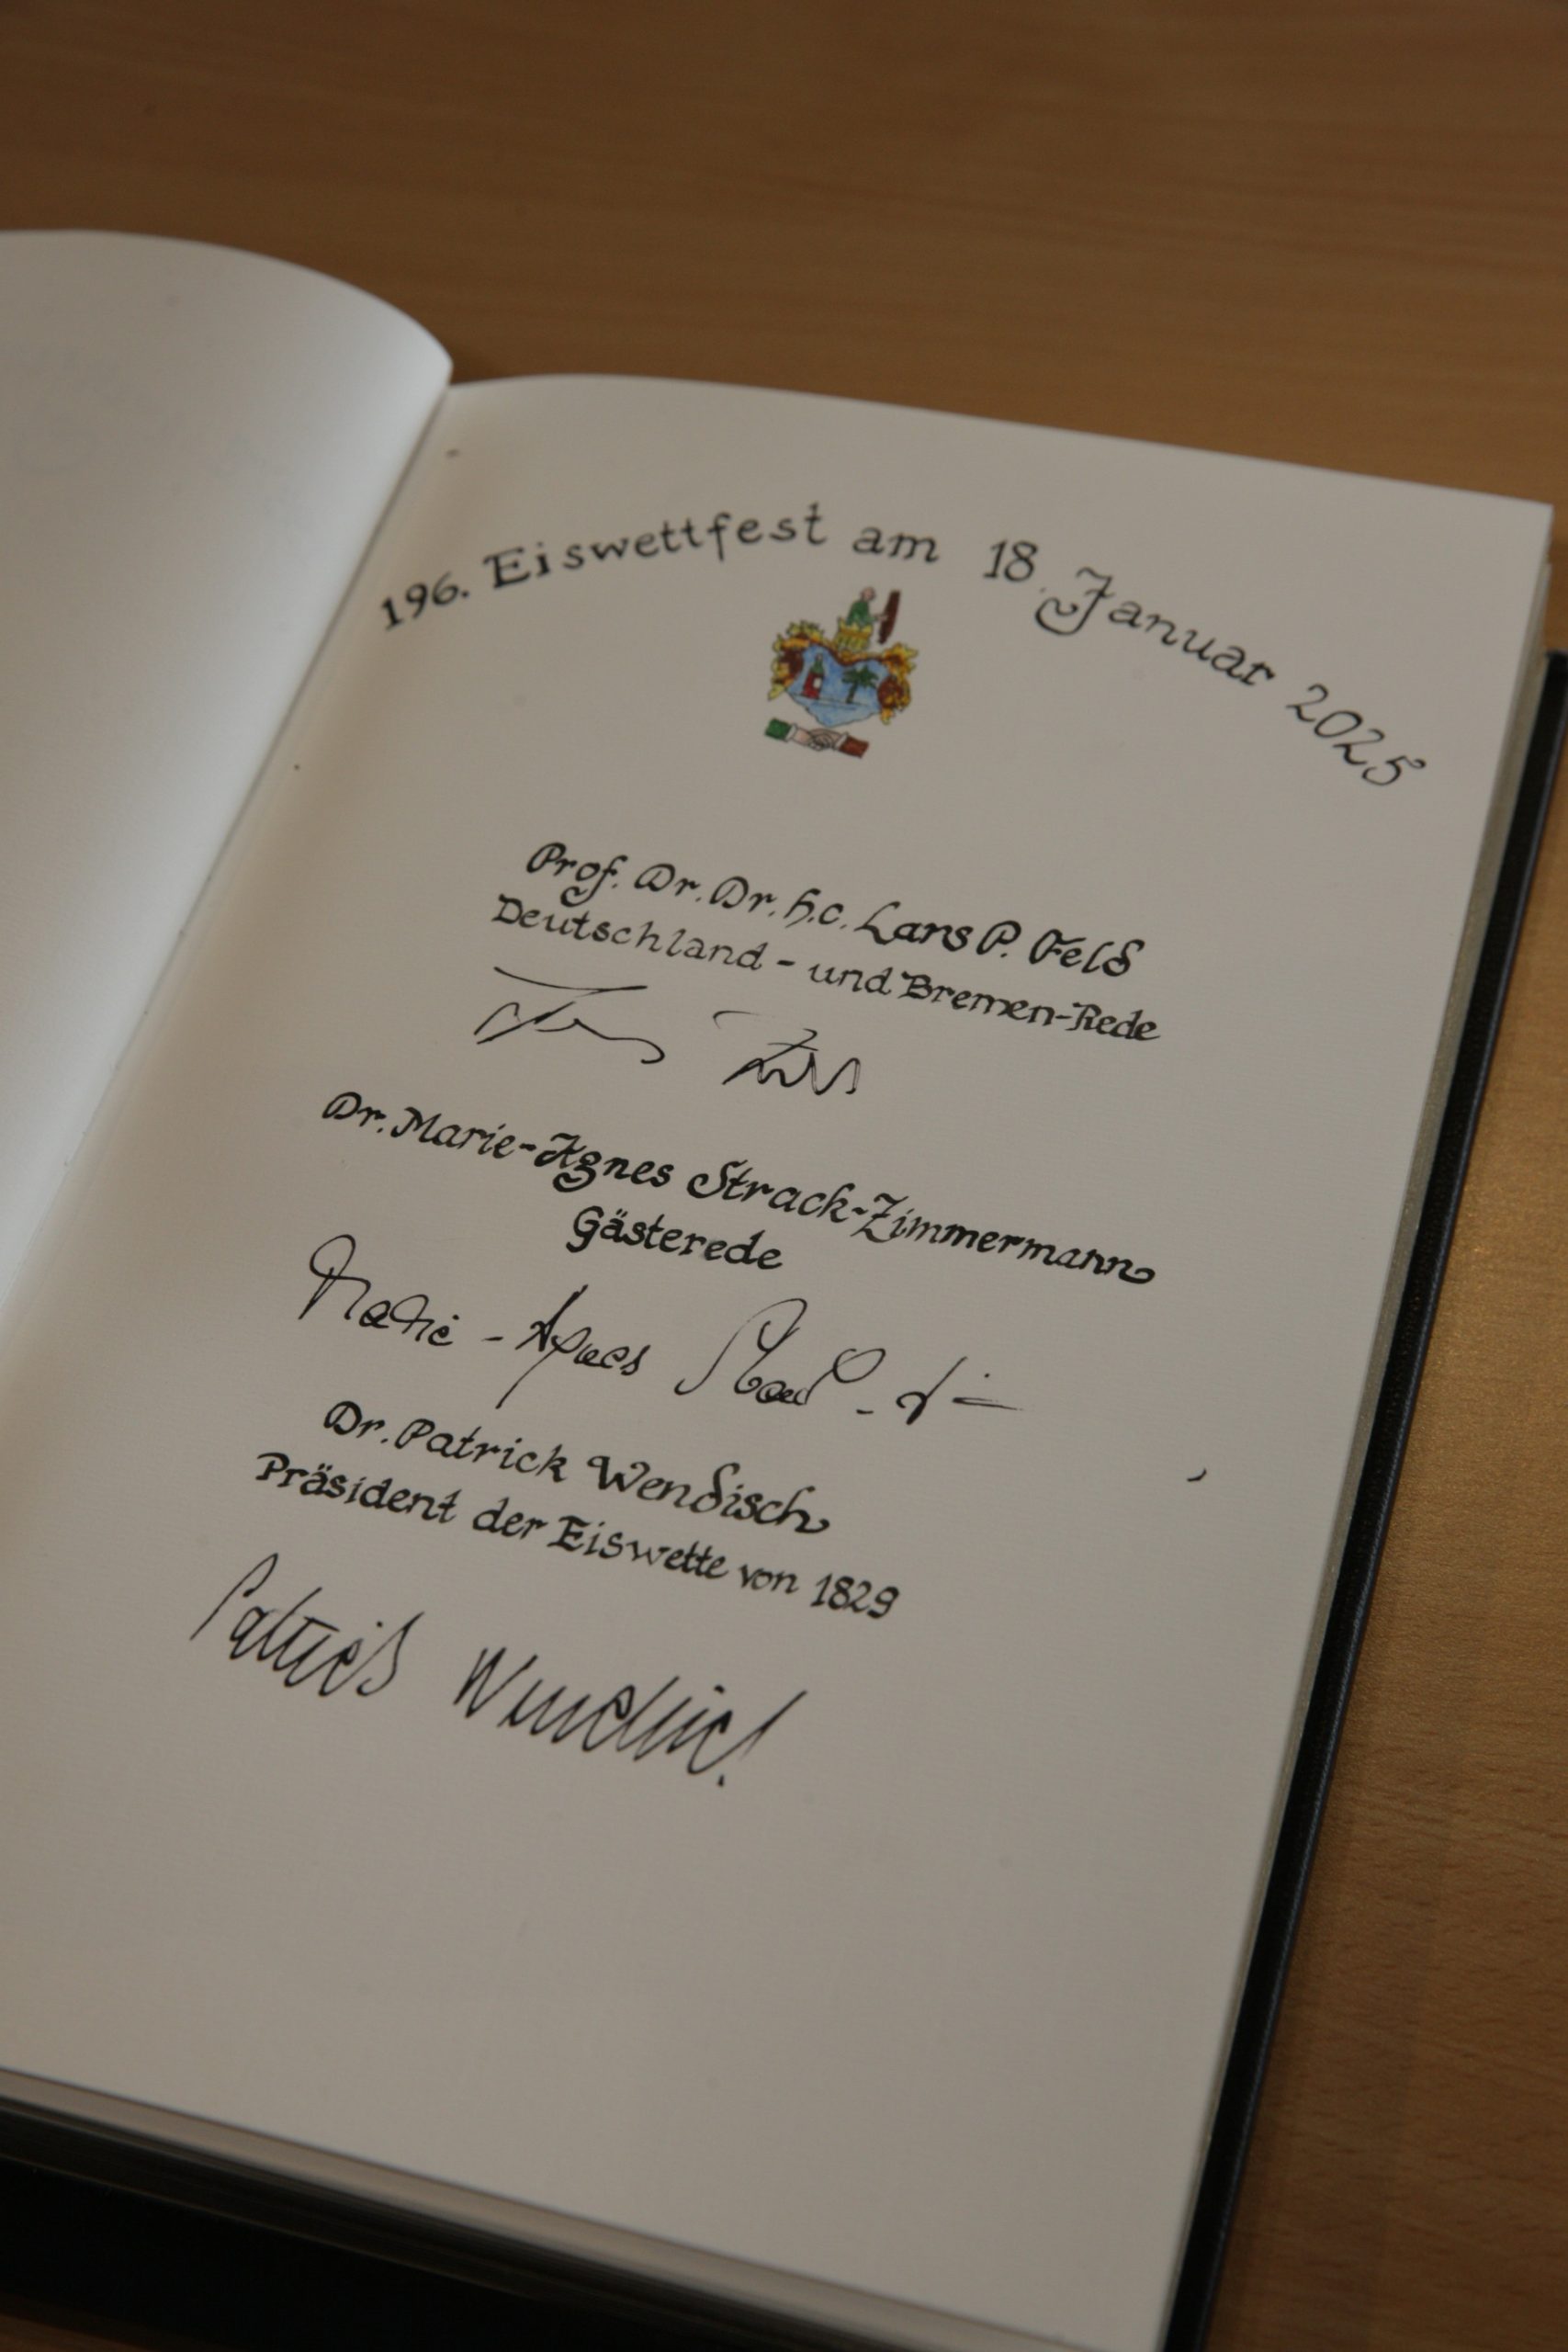 196. Eiswettfest am 18. Januar 2025
Prof. Dr. Dr. h.c. Lars P. Feld
Deutschland - und Bremen-Rede
Dr. Marie-Agnes Strack-Zimmermann
Gästerede
Marie - Agnes Strack - Zi
Dr. Patrick Wendisch
Präsident der Eiswette von 1829
Patrick Wendisch